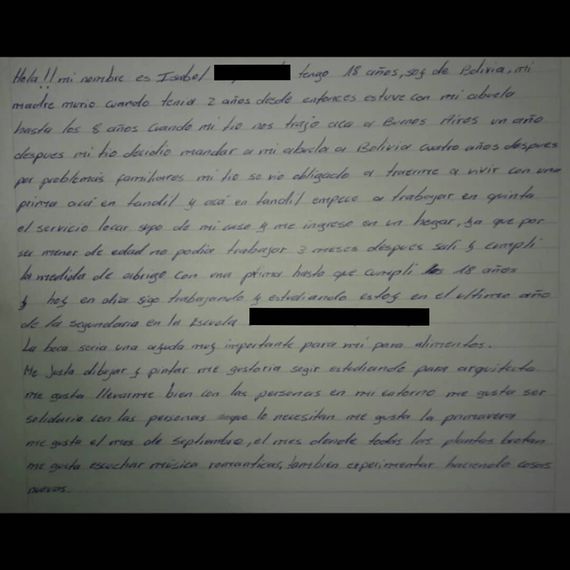 Hola!! mi nombre es Isabel tengo 18 años, soy de Bolivia, mi
madre murio cuando tenia 2 años desde entonces estuve con mi abuela
hasta los 8 años cuando mi tio nos trajo aca a Buenos Aires un año
despues mi tio decidio mandar a mi abuela a Bolivia cuatro años despues
por problemas familiares mi tio se vio obligado a traerme a vivir con una
prima acá en tandil y acá en tandil empece a trabajar en quinta
el servicio local supo de mi caso y me ingreso en un hogar, ya que por
ser menor de edad no podia trabajar 3 meses despues sali y cumpli
la medida de abrigo con una prima hasta que cumpli los 18 años
y hoy en dia sigo trabajando y estudiando estoy en el ultimo año
de la segundaria en la Escuela
La beca seria una ayuda muy importante para mi para alimentos.
Me justa dibujar y pintar me gustaria segir estudiando para arquitecta
me gusta llevarme bien con las personas en mi entorno me gusta ser
solidaria con las personas que lo necesitan me gusta la primavera
me gusta el mes de Septiembre, el mes donde todas las plantas brotan
me gusta escuchar música romanticas, tambien experimentar haciendo cosas
nuevas.